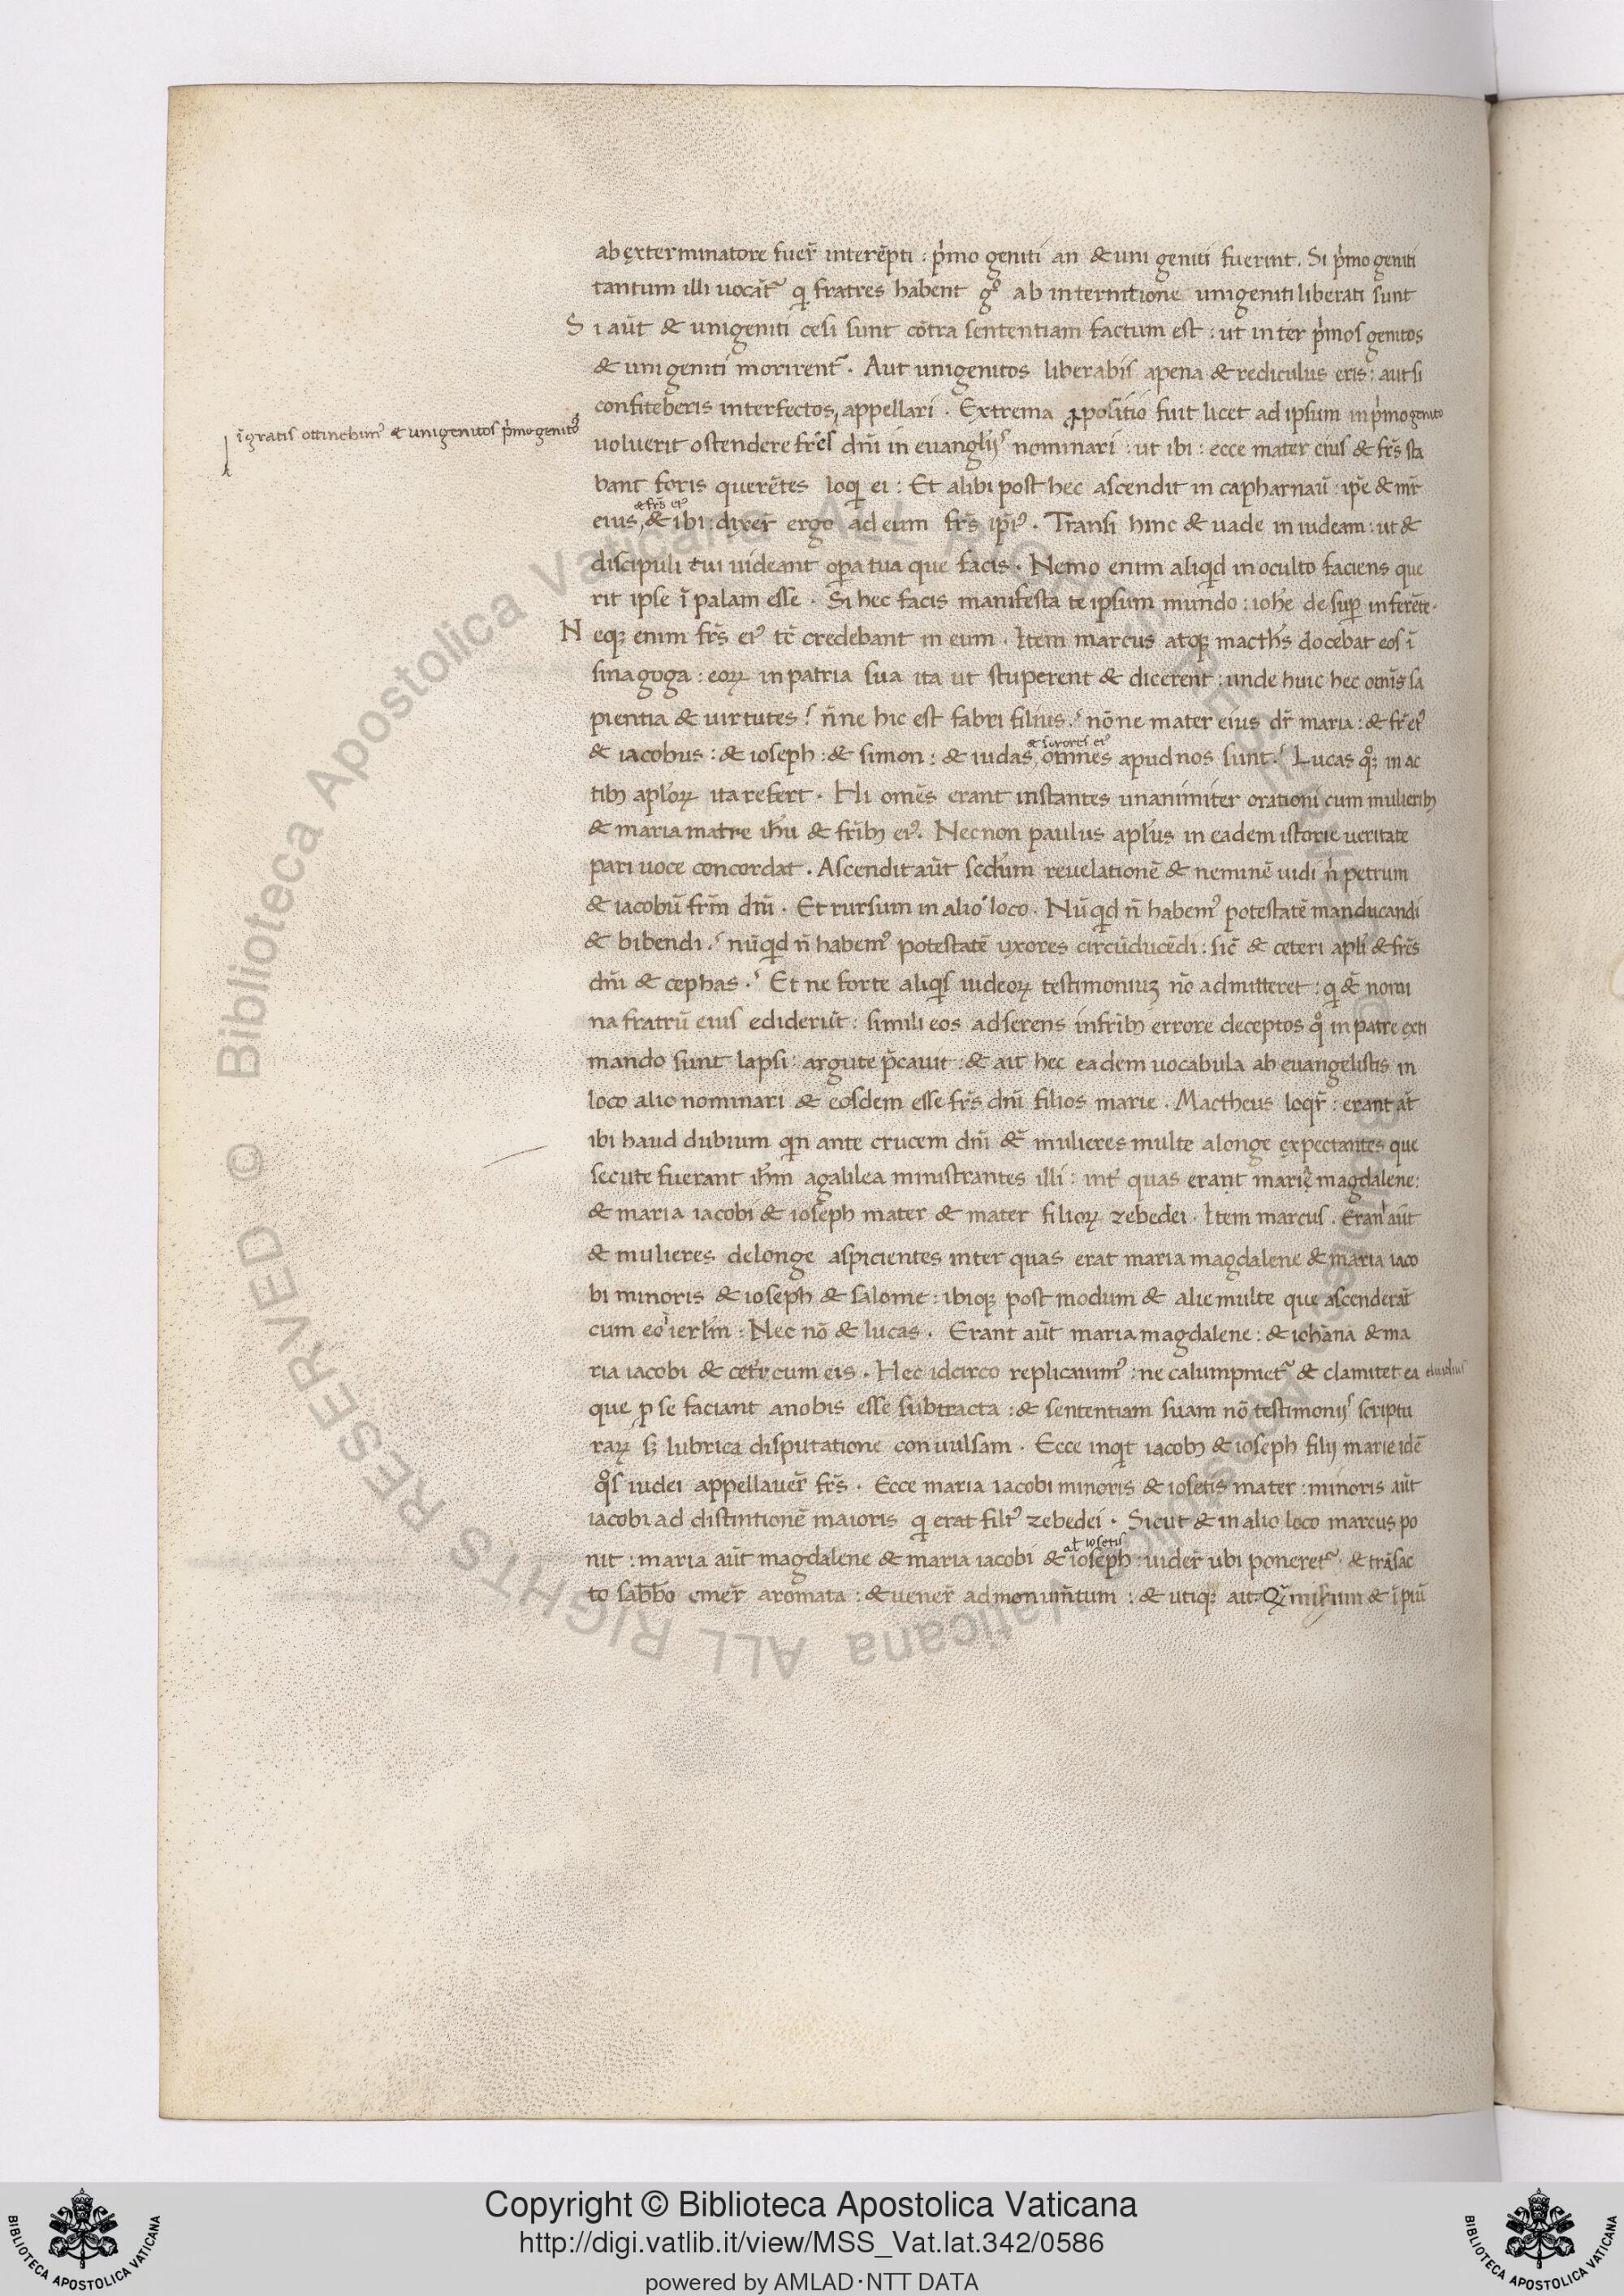 ab exterminatore fuer̄ interēpti : pͥmo geniti an & uni geniti fuerint . Si pͥmo geniti
tantum illi uocāt᷑ qͥ fratres habent gͦ ab internitione unigeniti liberati sunt
S i aūt & unigeniti cesi sunt cōtra sententiam factum est : ut inter pͥmos genitos
& uni geniti morirent᷑ . Aut unigenitos liberabis apena & rediculus eris : aut si
confiteberis interfectos, appellari . Extrema ꝓpositio fuit licet ad ipsum in pͥmogenito
īgratis ottinebimꝰ & unigenitos pͥmogenitꝰ
uoluerit ostendere fr̄es dn̄i in euanglijs nominari : ut ibi : ecce mater eius & fr̄s sta
bant foris querētes loqͥ ei : Et alibi post hec ascendit in capharnaū : ip̄e & mr̄
& fr̄s eiꝰ
eius, & ibi : dixer̄ ergo ad eum fr̄s ip̄iꝰ . Transi hinc & uade in iudeam : ut &
discipuli tui uideant oꝑa tua que facis . Nemo enim aliqͥd in oculto faciens que
rit ipse ī palam esse . Si hec facis manifesta te ipsum mundo : ioh̄e de suꝑ inferēte .
N eqꝫ enim fr̄s eiꝰ tc̄ credebant in eum . Item marcus atqꝫ macth̄s docebat eos ī
sinagoga : eoꝝ in patria sua ita ut stuperent & dicerent : unde huic hec om̄is sa
pientia & uirtutes ? n̄ne hic est fabri filius ? nōne mater eius dr̄ maria : & fr̄ eiꝰ
& sorores eiꝰ
& iacobus : & ioseph : & simon : & iudas, omnes apud nos sunt ? Lucas qͦꝫ in ac
tibꝫ apl̄oꝝ ita refert . Hi omēs erant instantes unanimiter orationi cum mulieribꝫ
& maria matre ih̄u & fr̄ibꝫ eiꝰ . Necnon paulus apl̄us in eadem istorie ueritate
pari uoce concordat . Ascendit aūt scd̄um reuelationē & neminē uidi n̄ petrum
& iacobū fr̄m dn̄i . Et rursum in alio loco . Nūqͥd n̄ habemꝰ potestatē manducandi
& bibendi ? nūqͥd n̄ habemꝰ potestatē uxores circūducēdi : sic̄ & ceteri apl̄i & fr̄s
dn̄i & cephas ? Et ne forte aliqͥs iudeoꝝ testimoniuꝫ nō admitteret : qͥ &̄ nomi
na fratrū eius ediderūt : simili eos adserens in fr̄ibꝫ errore deceptos qͦ in patre exti
mando sunt lapsi : argute p̄cauit : & ait hec eadem uocabula ab euangelistis in
loco alio nominari & eosdem esse fr̄s dn̄i filios marie . Mactheus loqͥr̄ : erant at̄
ibi haud dubium qͥn ante crucem dn̄i &̄ mulieres multe alonge expectantes que
secute fuerant ih̄m agalilea ministrantes illi : int̄ quas erant marię magdalene :
& maria iacobi & ioseph mater & mater filioꝝ zebedei . Item marcus . Erant aūt
& mulieres delonge aspicientes inter quas erat maria magdalene & maria iaco
bi minoris & ioseph & salome : ibiqꝫ post modum & alie multe que ascenderāt
cum eo ierl̄m : Nec nō & lucas . Erant aūt maria magdalene : & iohāna & ma
ria iacobi & cetr̄ cum eis . Hec idcirco replicauimꝰ : ne calumpniet᷑ & clamitet ea eluidius
que ꝑ se faciant anobis esse subtracta : & sententiam suam nō testimonijs scriptu
raꝝ sꝫ lubrica disputatione conuulsam . Ecce inqͥt iacobꝫ & ioseph filij marie idē
qͦs iudei appellauer̄ fr̄s . Ecce maria iacobi minoris & iosetis mater : minoris aūt
iacobi ad distintionē maioris qͥ erat filiꝰ zebedei . Sicut & in alio loco marcus po
at iosetis
nit : maria aūt magdalene & maria iacobi & ioseph : uider̄ ubi poneret᷑ . & trāsac
to sab̄bo emer̄ aromata : & uener̄ admonum̄tum : & utiqꝫ ait . & īpiū